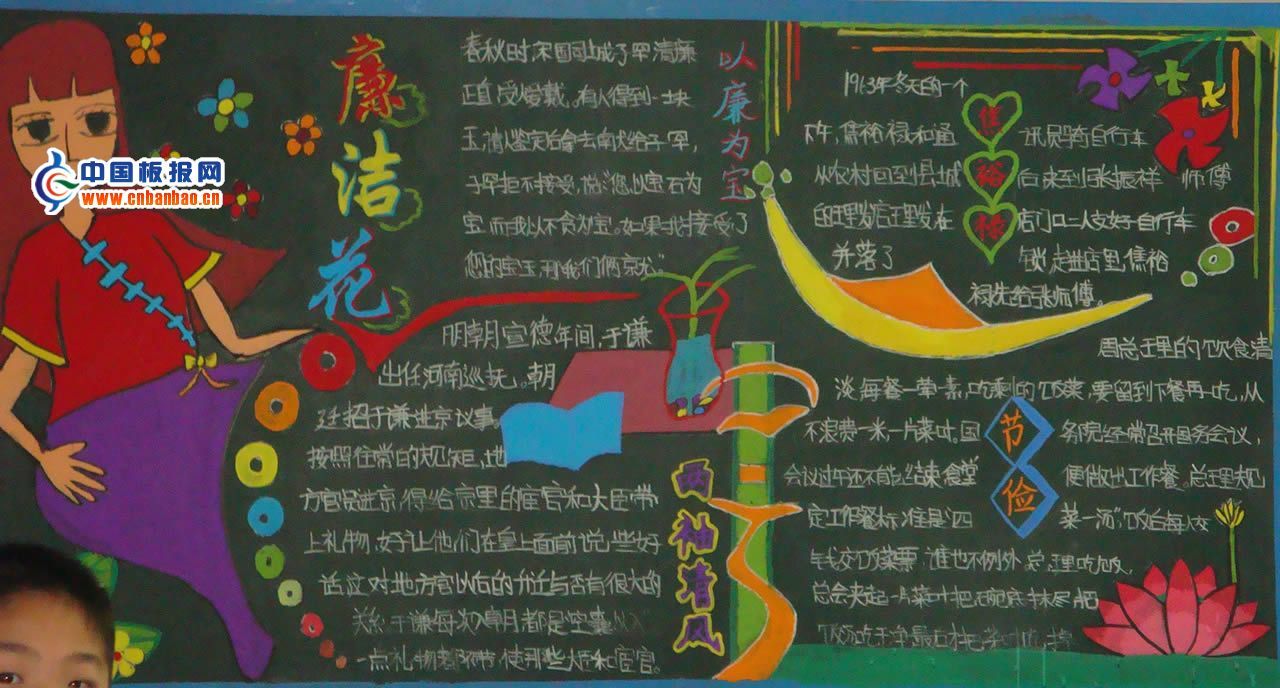 廉洁花
中国板报网
www.cnbanbao.cn
春秋时,宋国司城子罕清廉
正直,受人爱戴。有人得到一块
玉,请人鉴定后拿去献给子罕,
子罕拒不接受,说:您以宝石为
宝,而我以不贪为宝。如果我接受了
您的宝玉,那我们俩
以廉为宝
明朝宣德年间,于谦
出任河南巡抚。朝
廷招于谦进京议事。
按照往常的规矩,地
方官员进京,得给京里的宦官和大臣带
上礼物,好让他们在皇上面前说些好
话,这对地方官以后的升迁与否有很大的
关系 于谦每次 都是空囊
一点礼物都不带,使那些大臣和宦官。
两袖清风
焦裕禄
1963年冬天的一个
下午,焦裕禄和通 讯员骑自行车
从农村回到县城 后来到张振祥 师傅
的理发店理发在 店门口二人支好自行车
并落了 锁,走进店里,焦裕
禄先给张师傅。
周总理的饮食清
淡,每餐一荤一素,吃剩的饭菜,要留到下餐再吃,从
不浪费一米,一片菜叶。国 务院经常召开国务会议,
会议过午还不能结束,食堂 便做出工作餐。总理规
定工作餐标准是“四 菜一汤”,饭后每人交
钱交饭菜票,谁也不例外 总理吃饭,
总会夹起一片菜叶把碗底抹尽,把
饭汤吃干净,最后才把菜叶吃掉
节俭